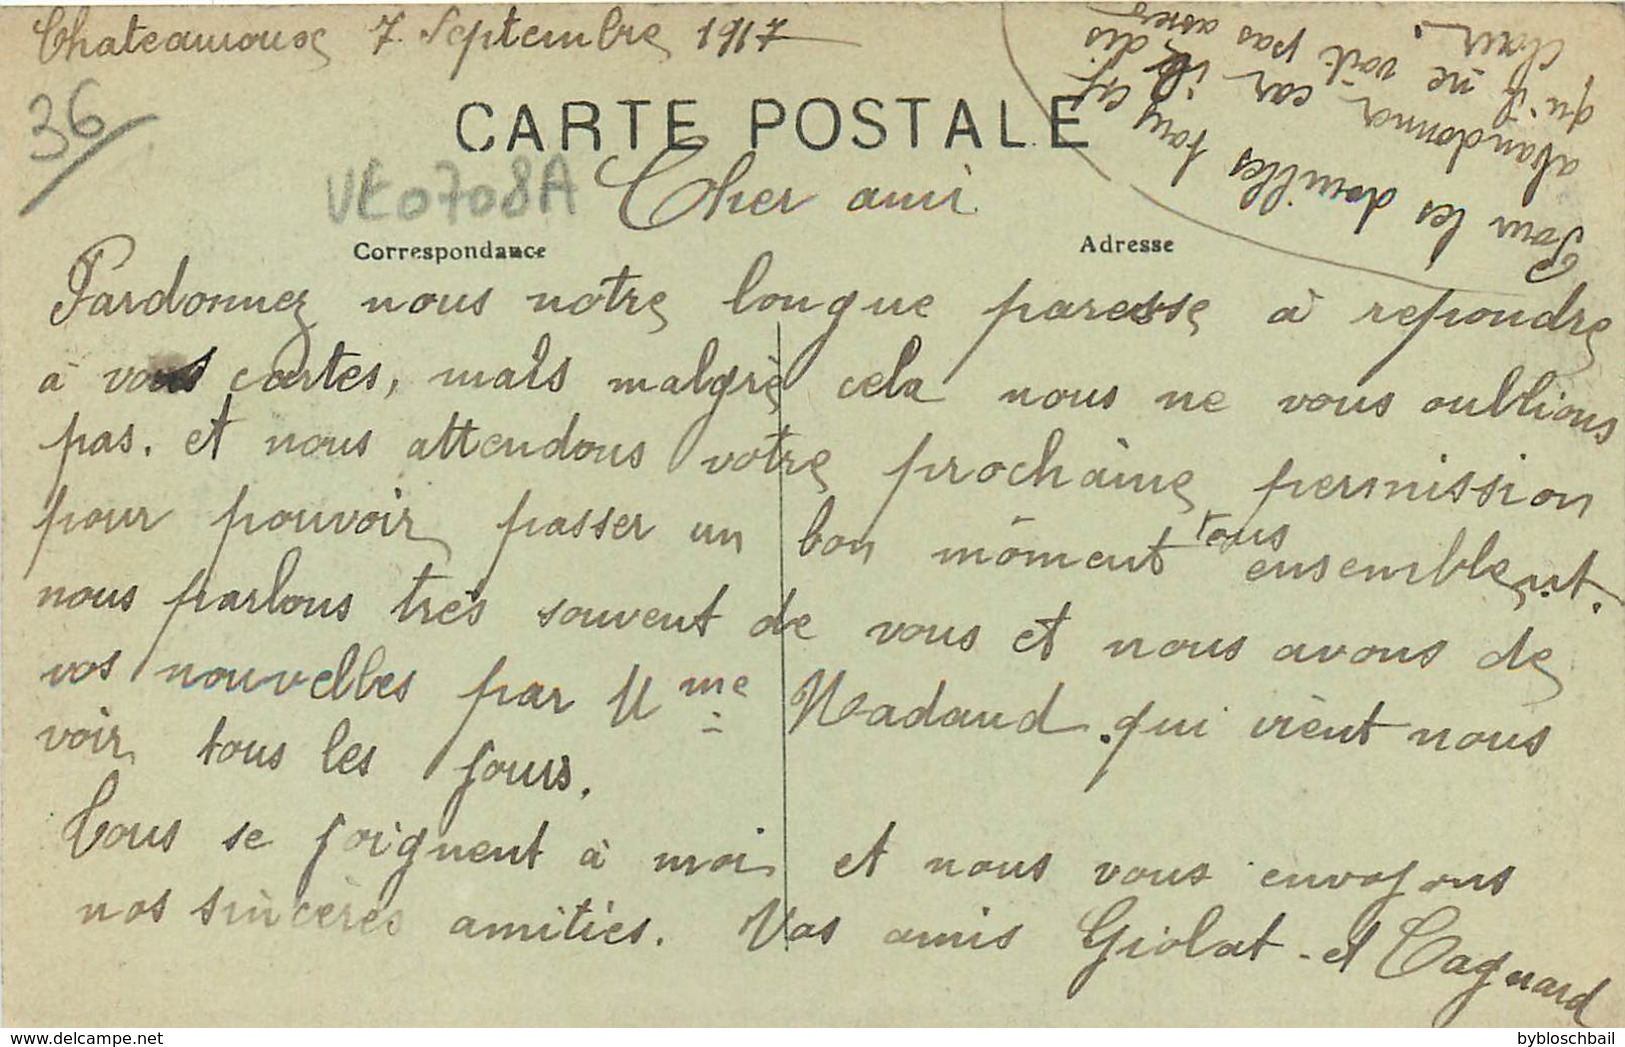 Chateauroux 7 Septembre 1917
36
CARTE POSTALE
VE0708A
Cher ami
Correspondance
Adresse
Pardonnez nous notre longue paresse à repondre
à vos cartes, mais malgrè cela nous ne vous oublions
pas. et nous attendons votre prochaine permission
pour pouvoir passer un bon moment tous ensemblent.
nous parlons très souvent de vous et nous avons de
vos nouvelles par Mme Nadaud qui vient nous
voir tous les jours.
Tous se joignent à moi et nous vous envoyons
nos sincères amitiés. Vos amis Giolat et Cagnard
Pour les douilles
abandonner car il dis
qu'il ne voit pas assez
clair.
byblosсhbail